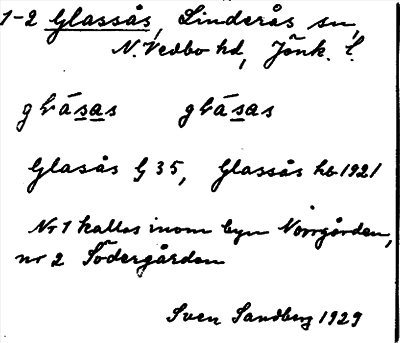 1-2 Glassås, Linderås sn,
N. Vedbo hd, Jönk. l.
glásas glásas
Glasås G 35, Glassås hb 1921
Nr 1 kallas inom byn Norrgården,
nr 2 Södergården
Sven Sandberg 1929